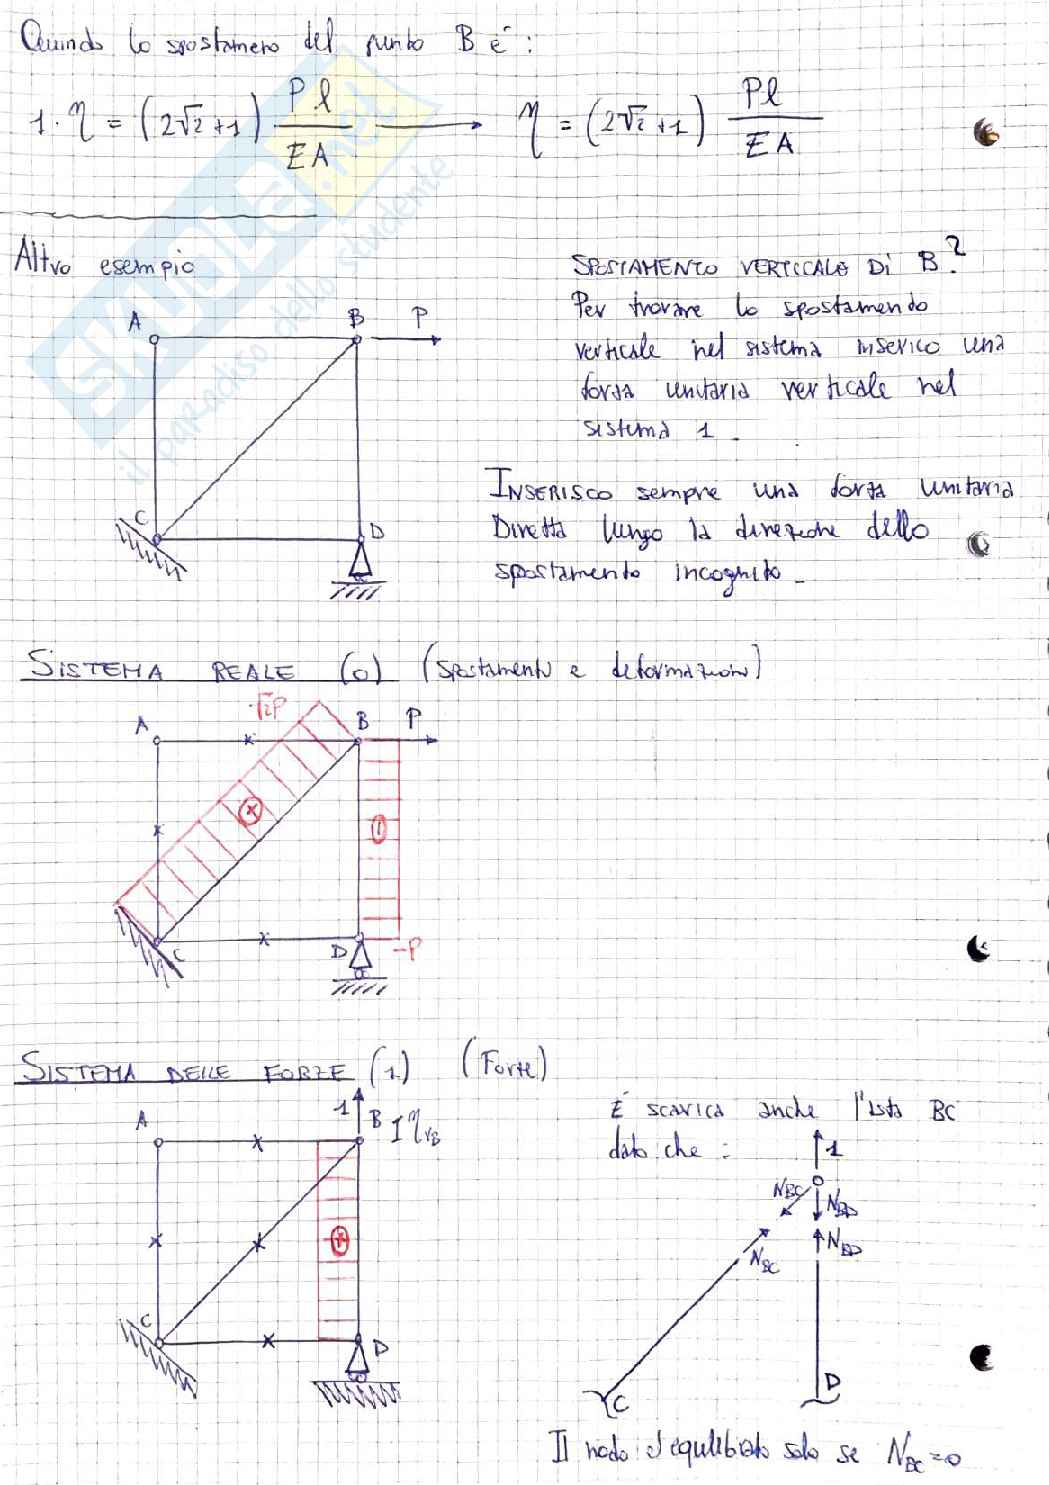 Quindi lo spostamento del punto B è :
1 · η = (2√2 + 1) Pl / EA → η = (2√2 + 1) Pl / EA
SKUOLA.net
il paradiso dello studente
Altro esempio
SPOSTAMENTO VERTICALE DI B?
Per trovare lo spostamento
verticale nel sistema inserisco una
forza unitaria verticale nel
sistema 1.
A B P
C D
INSERISCO sempre una forza unitaria
Diretta lungo la direzione dello
spostamento incognito.
SISTEMA REALE (0) (Spostamenti e deformazioni)
√2P
A B P
+
-
C D -P
SISTEMA DELLE FORZE (1) (Forze)
1
A B 1 η_VB
+
C D
È scarica anche l'asta BC
dato che :
1
N_BC N_BD
N_BC N_BD
C D
Il nodo è equilibrato solo se N_BC = 0